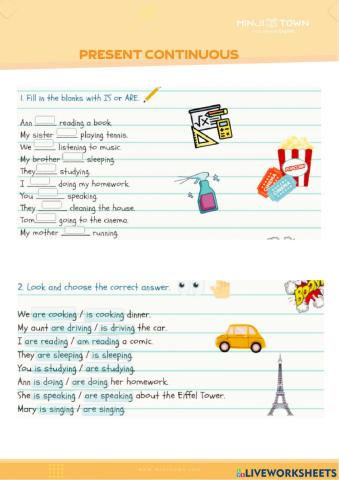 MINJI TOWN
PRESENT CONTINUOUS
1. Fill in the blanks with IS or ARE.
Ann reading a book.
My sister playing tennis.
We listening to music.
My brother sleeping.
They studying.
I doing my homework.
You speaking.
They cleaning the house.
Tom going to the cinema.
My mother running.
2. Look and choose the correct answer.
We are cooking / is cooking dinner.
My aunt are driving / is driving the car.
I are reading / am reading a comic.
They are sleeping / is sleeping.
You is studying / are studying.
Ann is doing / are doing her homework.
She is speaking / are speaking about the Eiffel Tower.
Mary is singing / are singing.
LIVEWORKSHEETS